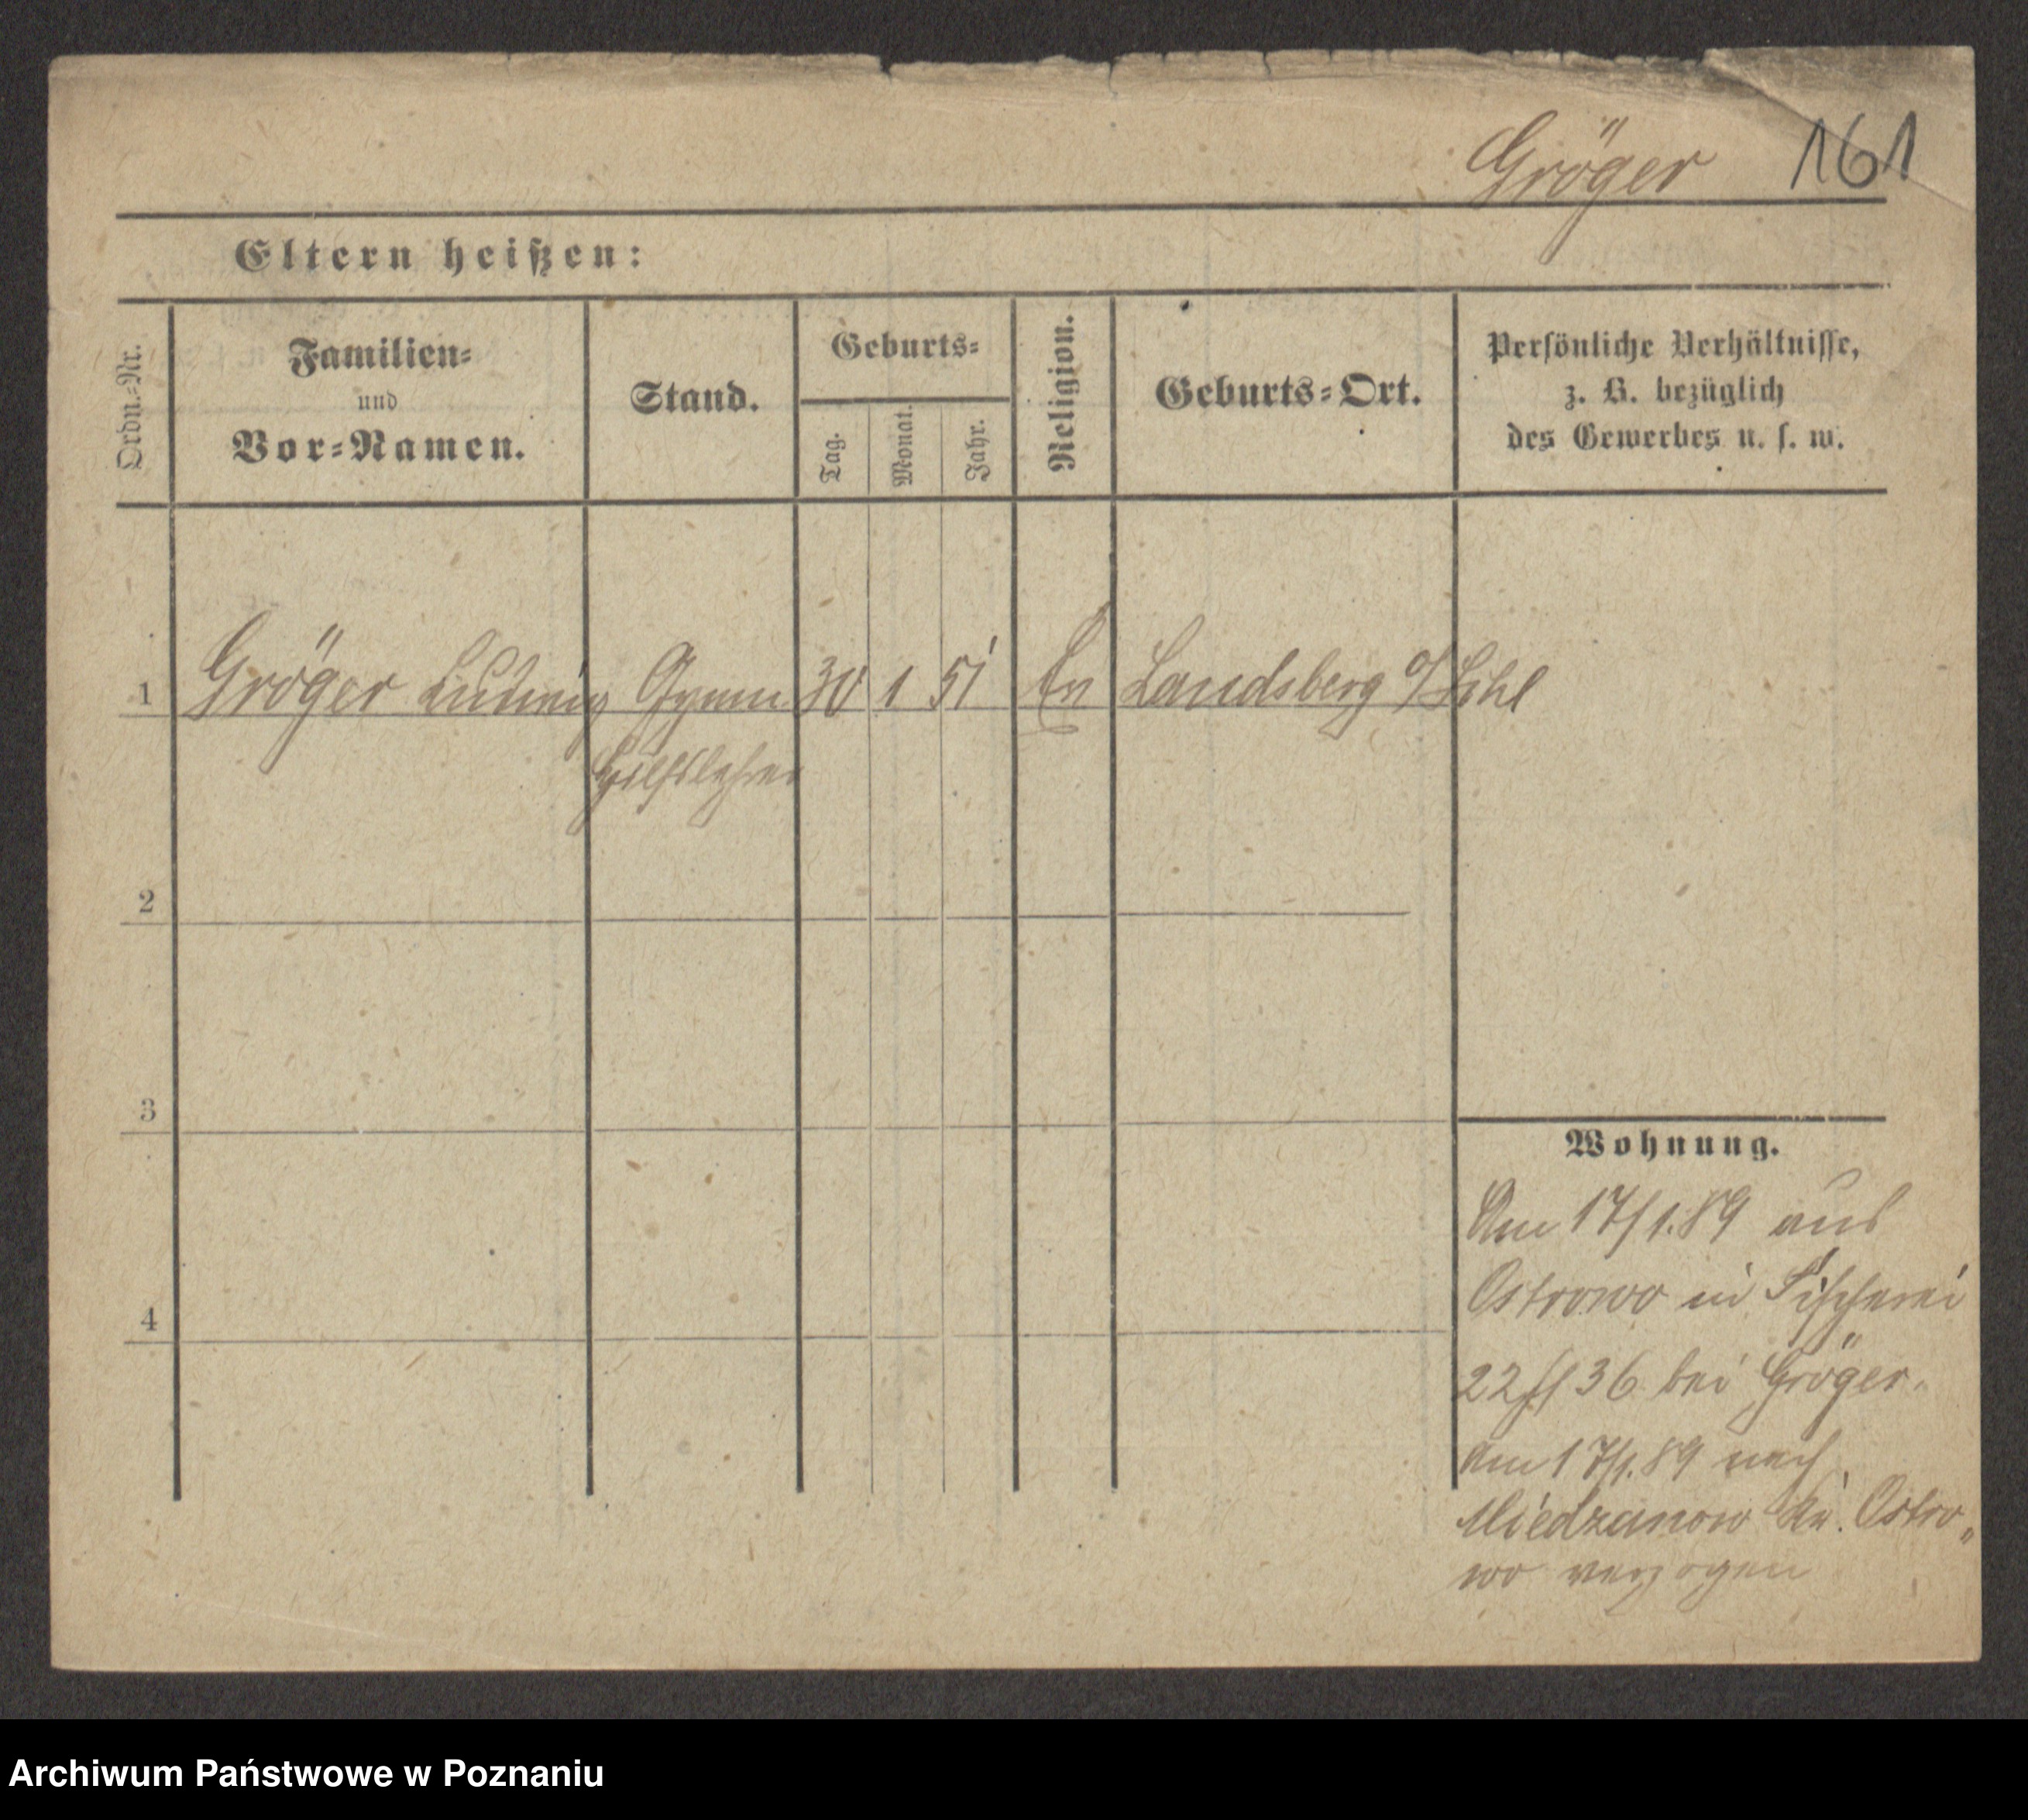 Gröger 161
Eltern heißen:
Ordn.-Nr.
Familien-
und
Vor-Namen.
Stand.
Geburts-
Tag.
Monat.
Jahr.
Religion.
Geburts-Ort.
Persönliche Verhältnisse,
z. B. bezüglich
des Gewerbes u. s. w.
1 Gröger Ludwig Gymn 30 1 51 Ev Landsberg o/Schl
Hilfslehrer
2
3
4
Wohnung.
Am 17/1.89 aus
Ostrowo in Fischerei
22 36 bei Gröger.
Am 17/1.89 nach
Miedzanow Kr. Ostro„
wo verzogen
Archiwum Państwowe w Poznaniu